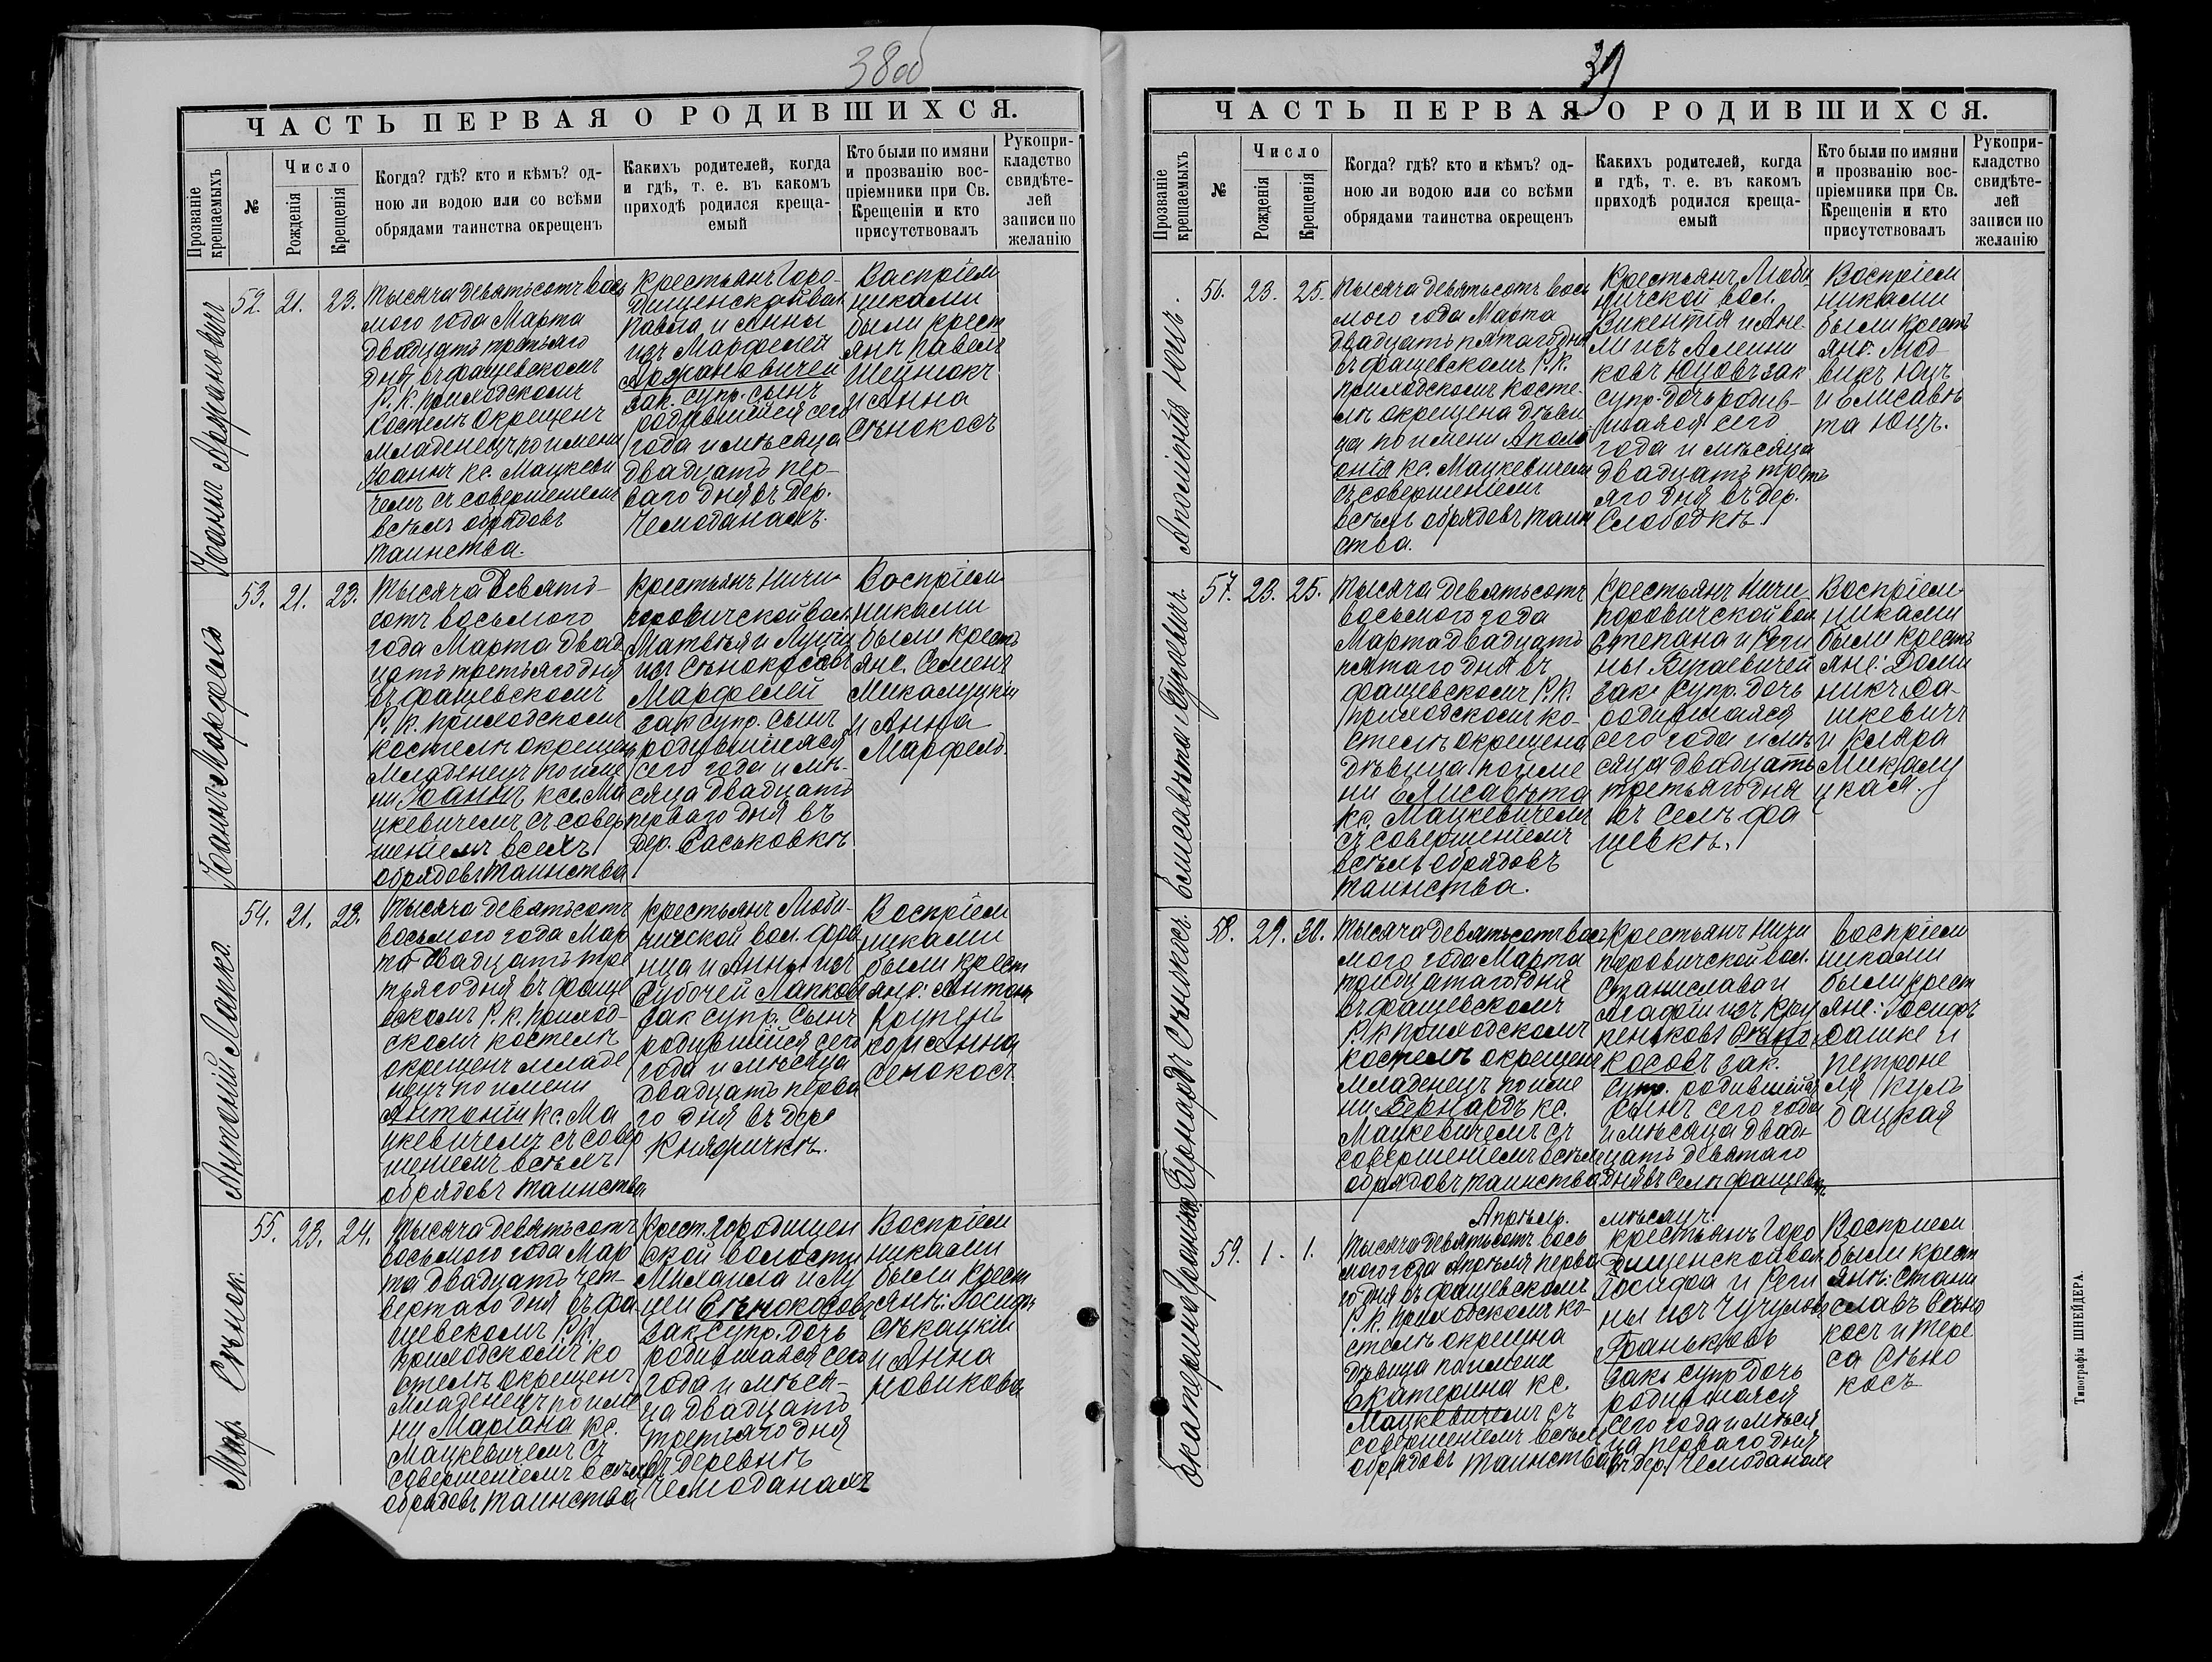 38об
ЧАСТЬ ПЕРВАЯ О РОДИВШИХСЯ.
Прозваніе крещаемыхъ
№
Число
Рожденія
Крещенія
Когда? гдѣ? кто и кѣмъ? од-
ною ли водою или со всѣми
обрядами таинства окрещенъ
Какихъ родителей, когда
и гдѣ, т. е. въ какомъ
приходѣ родился креща-
емый
Кто были по имяни
и прозванію вос-
пріемники при Св.
Крещеніи и кто
присутствовалъ
Рукопри-
кладство
свидѣте-
лей
записи по
желанію
Іоаннъ
52. 21. 23.
Тысяча девятьсотъ вось
мого года Марта
двадцать третьяго
дня въ фащевскомъ
Р. К. приходскомъ
костелѣ окрещенъ
младенецъ по имени
Іоаннъ кс. Мацкеви
чемъ съ совершеніемъ
всѣхъ обрядовъ
таинства.
Крестьянъ Горо-
дищенской вол
Павла и Анны
изъ Марфелей
зак. супр. сынъ
родившійся сего
года и мѣсяца
двадцать пер-
ваго дня въ дер.
Чемоданахъ.
Воспріем
никами
были крест
янъ Павелъ
и Анна
Сѣнокосъ
Іоаннъ Марфель
53. 21. 23.
Тысяча девять-
сотъ восьмого
года Марта двад
цать третьяго дня
въ фащевскомъ
Р. К. приходскомъ
костелѣ окрещенъ
младенецъ по име
ни Іоаннъ кс. Ма
цкевичемъ съ совер
шеніемъ всехъ
обрядовъ таинства
Крестьянъ Ничи-
поровичской вол.
Матвѣя и Луціи
изъ Сѣнокосовъ
Марфелей
зак супр. сынъ
родившійся
сего года и мѣ-
сяца двадцать
перваго дня въ
дер. Васьковкѣ
Воспріем
никами
были крестъ
яне. Семенъ
Микалуцкій
и Анна
Марфель.
Антоній Лапко.
54. 21. 23.
Тысяча девятьсотъ
восьмого года Мар
та двадцать тре
тьяго дня въ фаще
вскомъ Р. К. приход-
скомъ костелѣ
окрещенъ младе
нецъ по имени
Антоній кс. Ма
цкевичемъ съ совер
шеніемъ всѣхъ
обрядовъ таинства
Крестьянъ Люби-
ничской вол. Фра
нца и Анны изъ
Субочей Лапковъ
зак супр. сынъ
родившійся сего
года и мѣсяца
двадцать перва
го дня въ дере
Княжичкѣ.
Воспріем
никами
были крест
яне: Антонъ
Крупень
ко и Анна
Сенокосъ.
Мар. Сѣнок.
55. 23. 24.
Тысяча девятьсотъ
восьмого года Мар
та двадцать чет-
вертаго дня въ фа-
щевскомъ Р. К.
приходскомъ ко
стелѣ окрещенъ
младенецъ по име
ни Маріана кс.
Мацкевичемъ съ
совершеніемъ всѣхъ
обрядовъ таинства
Крест. Городищен
ской волости
Михаила и Лу
ціи Сѣнокосовъ
зак супр. дочь
родившаяся сего
года и мѣся-
ца двадцать
третьяго дня
въ деревнѣ
Чемоданахъ
Воспріем
никами
были крест
янѣ: Іосифъ
Сѣкацкій
и Анна
Новикова
39
ЧАСТЬ ПЕРВАЯ О РОДИВШИХСЯ.
Прозваніе крещаемыхъ
№
Число
Рожденія
Крещенія
Когда? гдѣ? кто и кѣмъ? од-
ною ли водою или со всѣми
обрядами таинства окрещенъ
Какихъ родителей, когда
и гдѣ, т. е. въ какомъ
приходѣ родился креща-
емый
Кто были по имяни
и прозванію вос-
пріемники при Св.
Крещеніи и кто
присутствовалъ
Рукопри-
кладство
свидѣте-
лей
записи по
желанію
Аполонія Юцъ.
56. 23. 25.
Тысяча девятьсотъ вось
мого года Марта
двадцать пятаго дня
въ фащевскомъ Р. К.
приходскомъ косте-
лѣ окрещена дѣви
ца по имени Аполо
онія кс. Мацкевичемъ
съ совершеніемъ
всѣхъ обрядовъ таин
ства.
Крестьянъ Люби
ничской вол.
Викентія и Ане
ли изъ
Юцовъ зак
супр. дочь родив-
шаяся сего
года и мѣсяца
двадцать треть
яго дня въ дер.
Слободкѣ.
Воспріем
никами
были крестъ
яне: Люд
викъ Юцъ
и Елисавѣ
та Юцъ.
Елисавѣта
57. 23. 25.
Тысяча девятьсотъ
восьмого года
Марта двадцать
пятаго дня въ
фащевскомъ Р. К.
приходскомъ ко-
стелѣ окрещена
дѣвица по име
ни Елисавѣта
кс. Мацкевичемъ
съ совершеніемъ
всѣхъ обрядовъ
таинства.
Крестьянъ Ничи
поровичской вол
Степана и Реги
ны
зак. супр. дочь
родившаяся
сего года и мѣ
сяца двадцать
третьяго дня
въ селѣ фа
щевкѣ.
Воспріем
никами
были крестъ
яне: Доми
никъ Да-
шкевичъ
и Клара
Микалу
цкая.
Бернардъ Сѣнокосъ.
58. 29. 30.
Тысяча девятьсотъ вось
мого года Марта
тридцатаго дня
въ фащевскомъ
Р. К приходскомъ
костелѣ окрещенъ
младенецъ по име
ни Бернардъ кс.
Мацкевичемъ съ
совершеніемъ всѣхъ
обрядовъ таинства
Крестьянъ Ничи
поровичской вол.
Станислава и
Агафіи изъ Кру
пеньковъ Сѣно
косовъ зак.
супр. родившійся
сынъ сего года
и мѣсяца двад-
цать девятаго
дня въ селѣ фащевкѣ
Воспріем
никами
были крест
яне: Іосифъ
и
Петроне
ля
Екатерина
Апрѣль. мѣсяцъ.
59. 1. 1.
Тысяча девятьсотъ вось
мого года Апрѣля перва
го дня въ фащевскомъ
Р. К. приходскомъ ко-
стелѣ окрещена
дѣвица по имени
Екатерина кс.
Мацкевичемъ съ
совершеніемъ всѣхъ
обрядовъ таинства
Крестьянъ Горо
дищенской вол
Іосифа и Реги
ны изъ
зак супр дочь
родившаяся
сего года и мѣся
ца перваго дня
въ дер. Чемоданах
Воспріем
были крест
янѣ: Стани
славъ Сѣно
косъ и Тере
са Сѣно
косъ
Типографія ШНЕЙДЕРА.